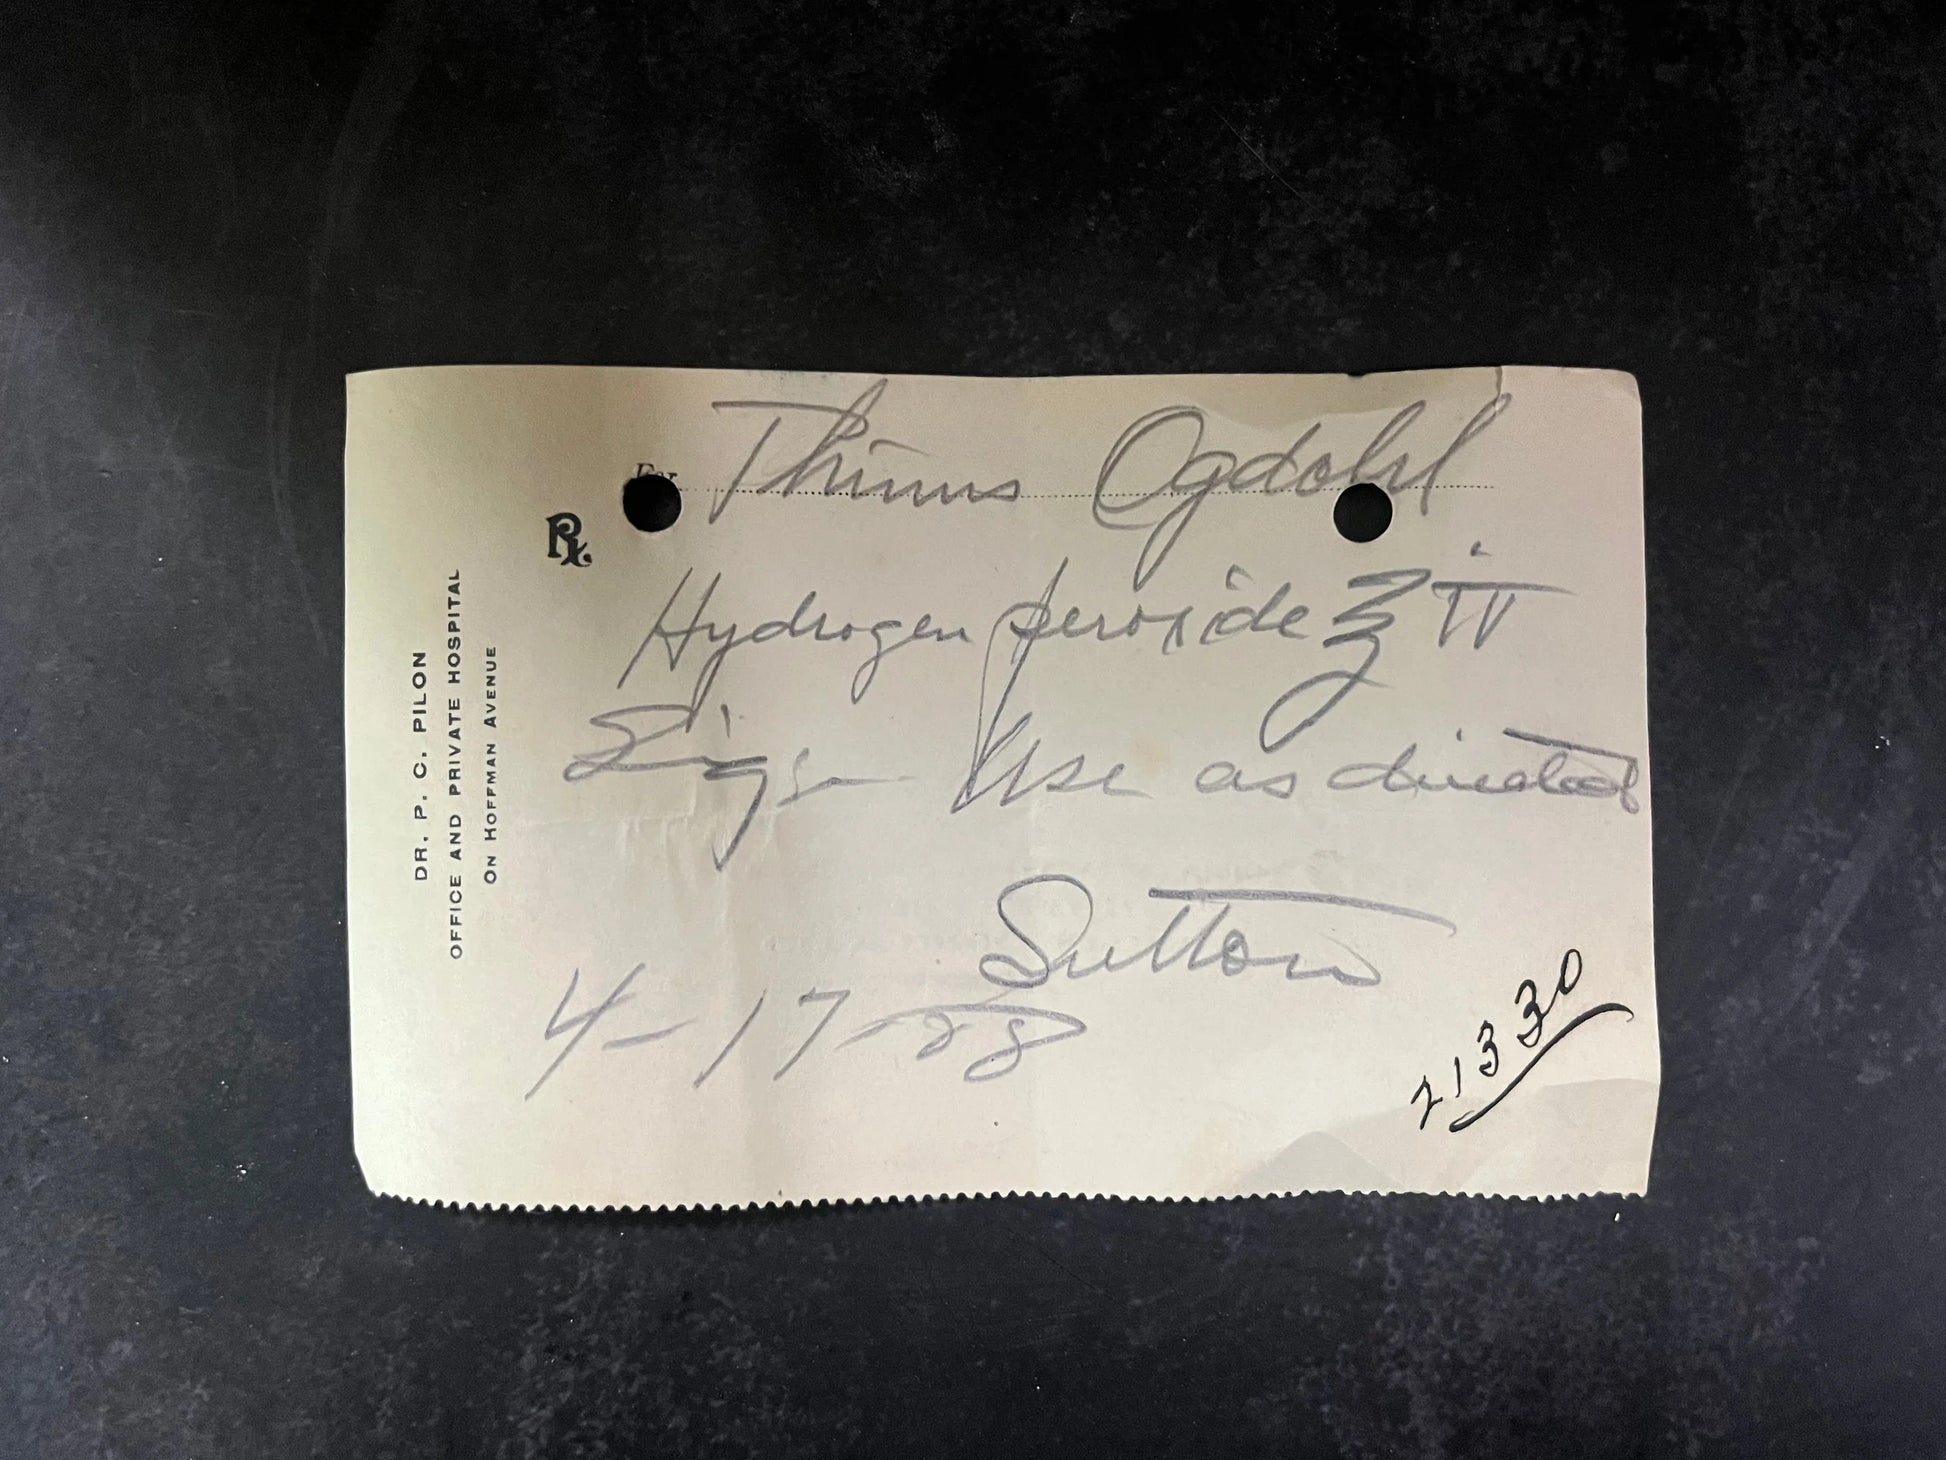 For Thinus Ogdahl
Rx
Hydrogen peroxide ℥ iv
Sig Use as directed
Sutton
4-17-28
21330
DR. P. C. PILON
OFFICE AND PRIVATE HOSPITAL
ON HOFFMAN AVENUE